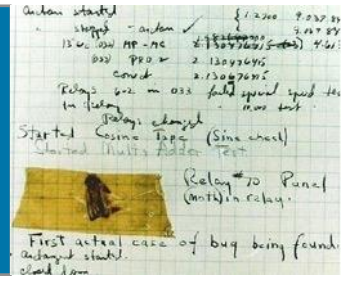 started
stopped - arctan ✓
13"uc (032) MP - MC
(033) PRO 2 2.130476415
correct 2.130676415
Relays 6-2 in 033 failed special speed test
in relay 11.00 test.
Relays changed
Started Cosine Tape (Sine check)
Started Mult+ Adder Test.
Relay #70 Panel
(moth) in relay.
First actual case of bug being found.
started.
closed down